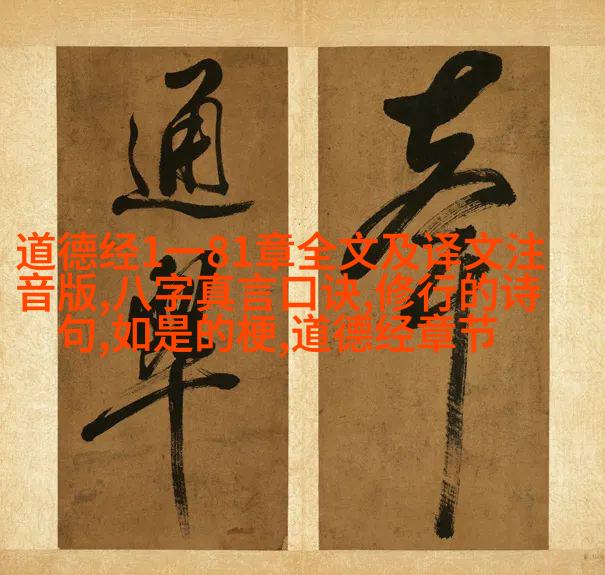 通
道德经1一81章全文及译文注
音版,八字真言口诀,修行的诗
句,如是的梗,道德经章节